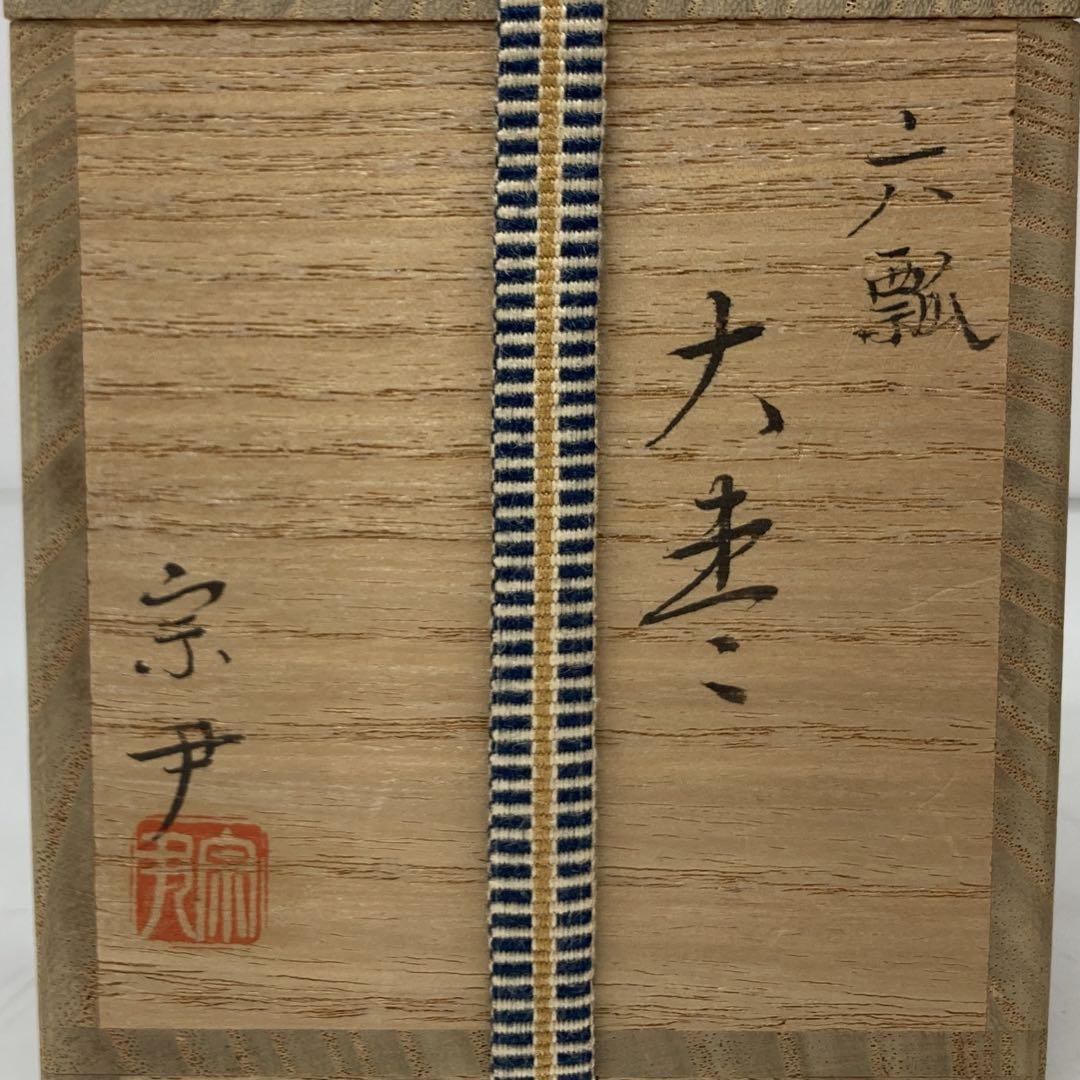 六瓢
大棗
宗尹
宗尹